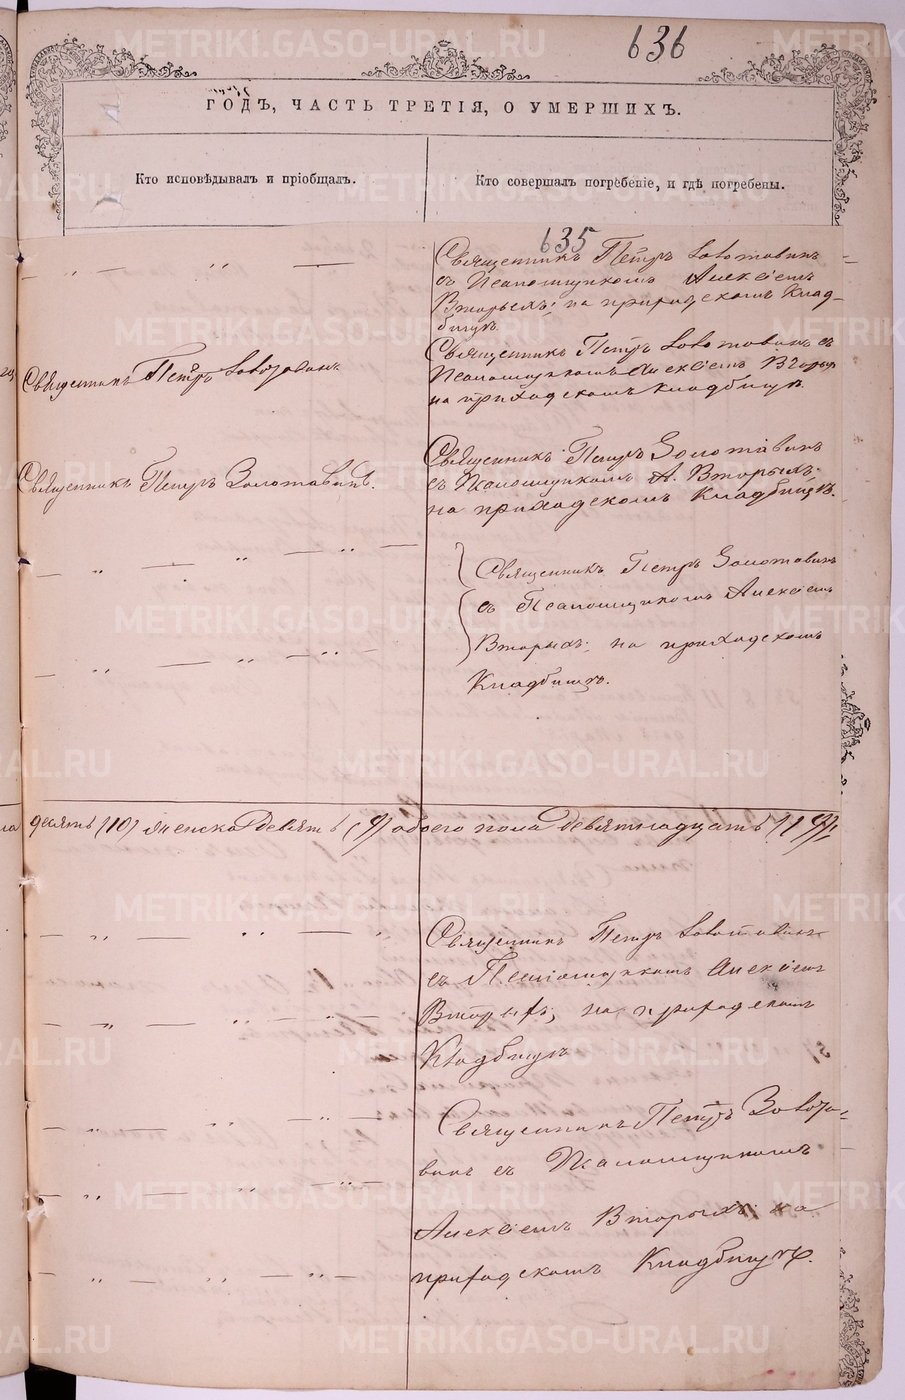 636
ГОДЪ, ЧАСТЬ ТРЕТІЯ, О УМЕРШИХЪ.
Кто исповѣдывалъ и пріобщалъ.
Кто совершалъ погребеніе, и гдѣ погребены.
635
Священникъ Петръ Золотавинъ
съ Псаломщикомъ Алексѣемъ
Вторыхъ, на приходскомъ Клад-
бищѣ.
Священникъ Петръ Золотавинъ
Священникъ Петръ Золотавинъ съ
Псаломщикомъ Алексѣемъ Вторых
на приходскомъ кладбищѣ.
Священникъ Петръ Золотавинъ.
Священникъ Петръ Золотавинъ
съ Псаломщикомъ А. Вторыхъ.
на приходскомъ Кладбищѣ.
Священникъ Петръ Золотавинъ
съ Псаломщикомъ Алексѣемъ
Вторыхъ, на приходскомъ
Кладбищѣ.
десять (10) женска девять (9) обоего пола девятнадцать (19)
Священникъ Петръ Золотавинъ
съ Псаломщикомъ Алексѣемъ
Вторыхъ, на приходскомъ
Кладбищѣ
Священникъ Петръ Золота-
винъ съ Псаломщикомъ
Алексѣемъ Вторыхъ на
приходскомъ Кладбищѣ.
METRIKI.GASO-URAL.RU